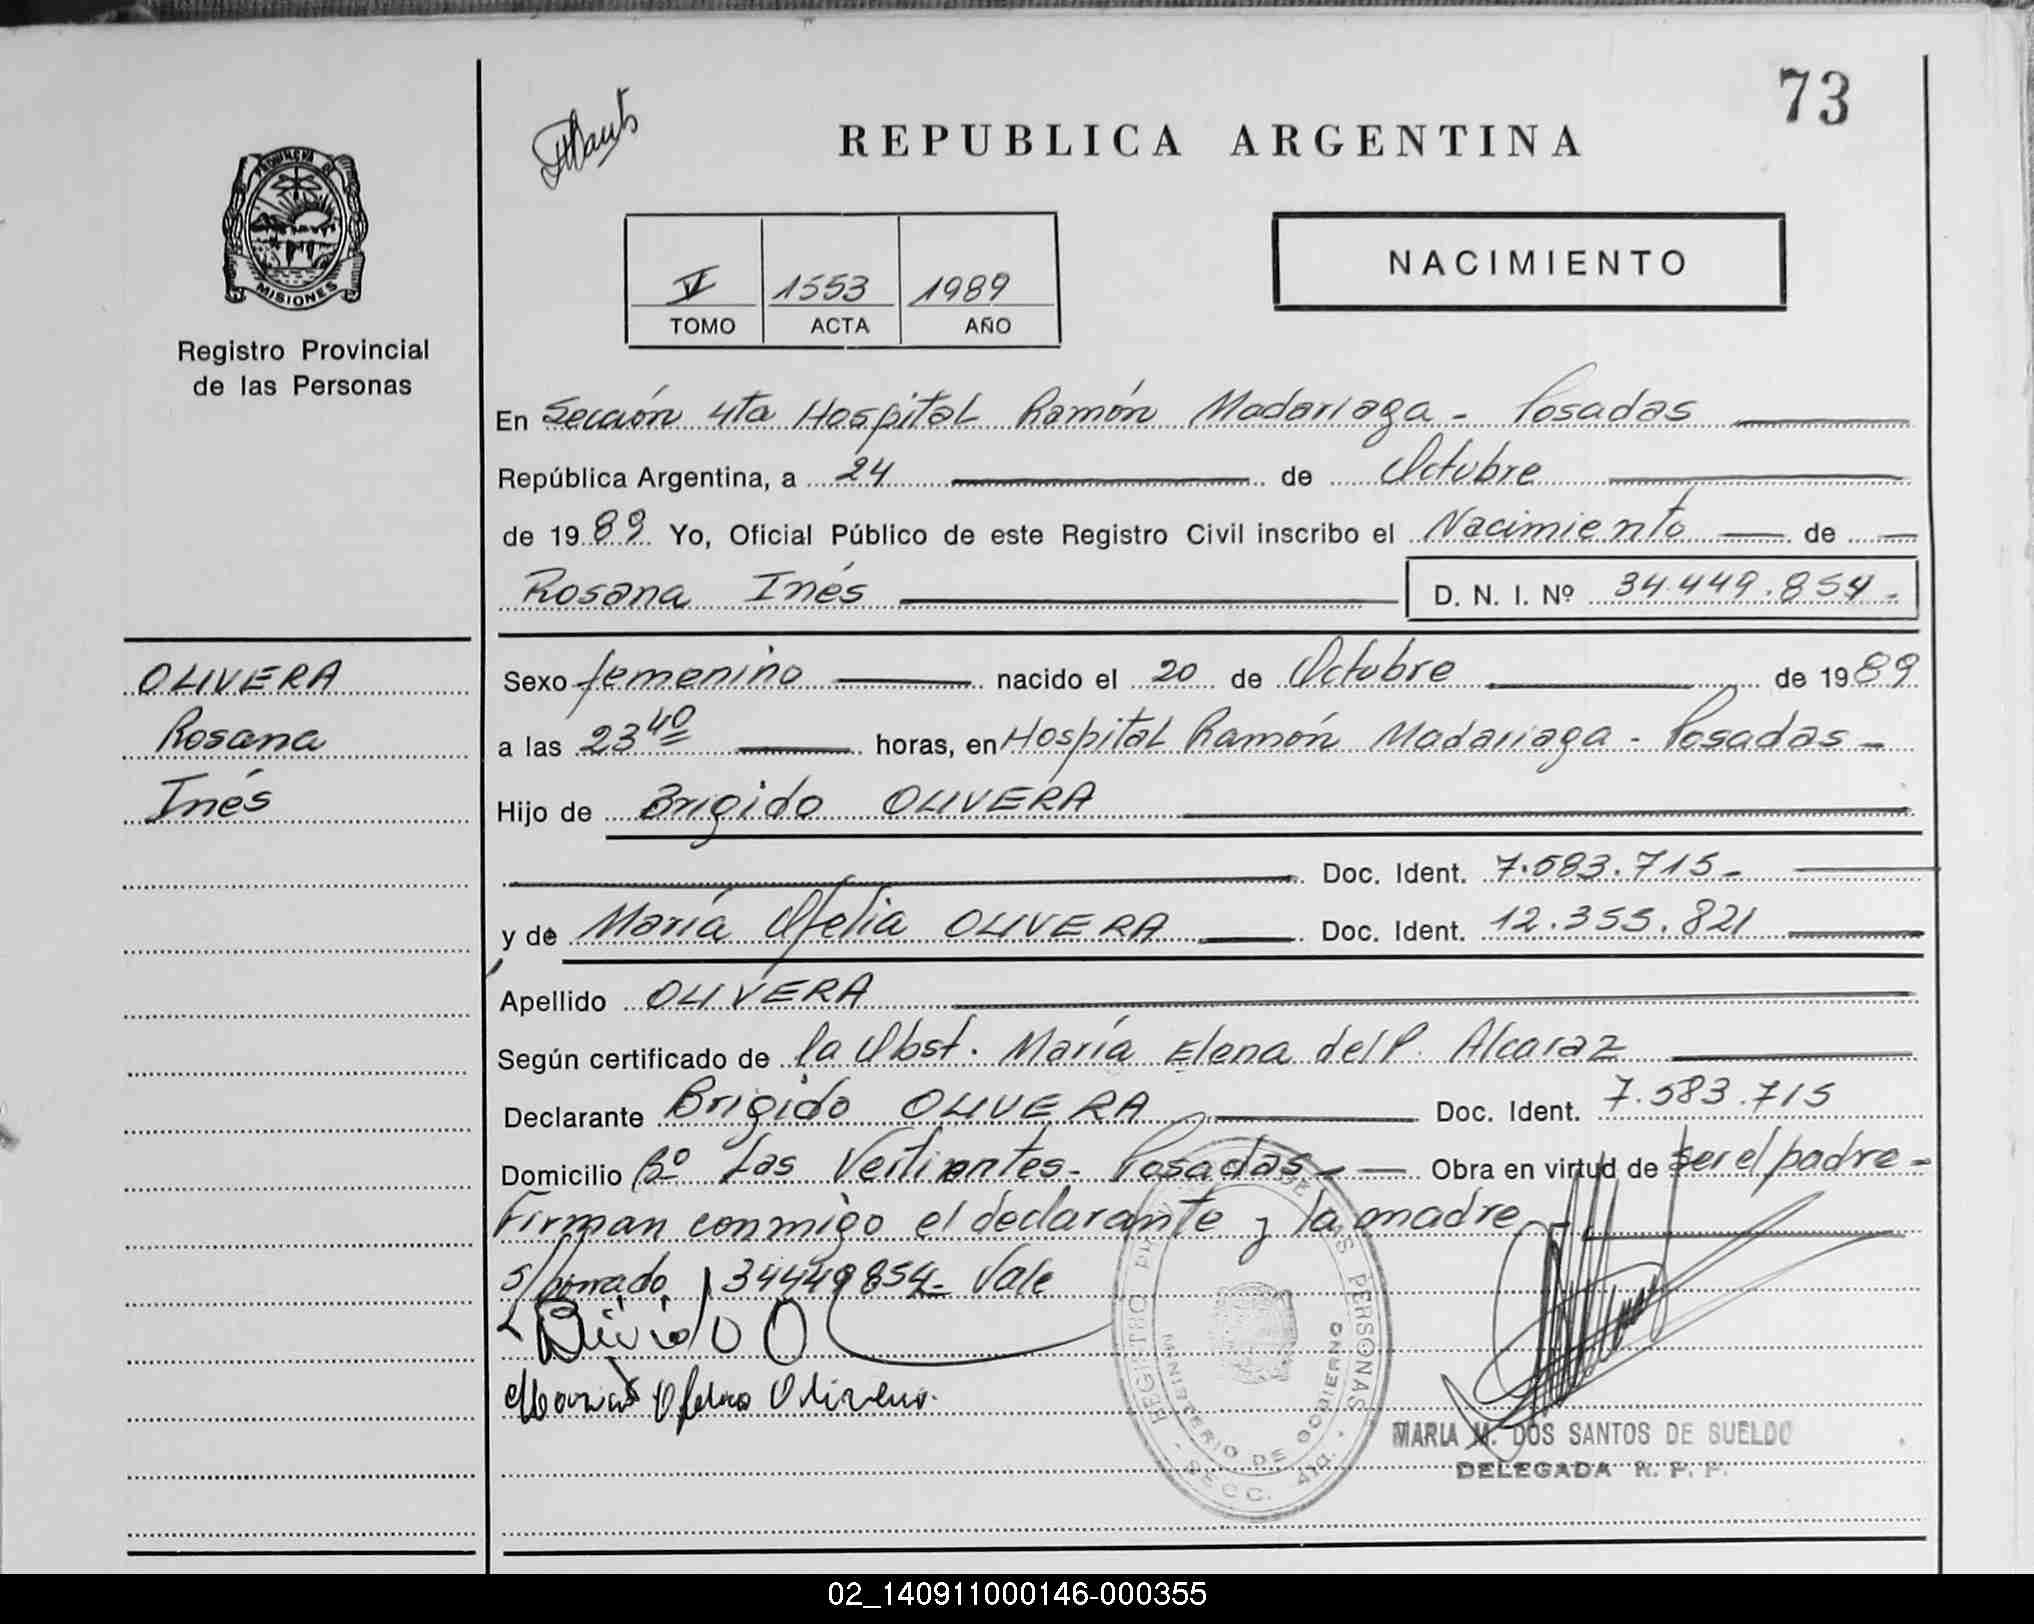 73
REPUBLICA ARGENTINA
PROVINCIA DE
MISIONES
Registro Provincial
de las Personas
V 1553 1989
TOMO ACTA AÑO
NACIMIENTO
En Sección 4ta Hospital Ramón Madariaga - Posadas
República Argentina, a 24 de Octubre
de 1989 Yo, Oficial Público de este Registro Civil inscribo el Nacimiento de
Rosana Inés D. N. I. Nº 34.449.854.-
OLIVERA
Rosana
Inés
Sexo femenino nacido el 20 de Octubre de 1989
a las 23 40 horas, en Hospital Ramón Madariaga - Posadas -
Hijo de Brigido OLIVERA
Doc. Ident. 7.583.715-
y de María Ofelia OLIVERA Doc. Ident. 12.355.821
Apellido OLIVERA
Según certificado de la Obst. María Elena del P. Alcaraz
Declarante Brigido OLIVERA Doc. Ident. 7.583.715
Domicilio Bº Las Vertientes - Posadas - Obra en virtud de ser el padre -
Firman conmigo el declarante y la madre
S/borrado 34449854- Vale
Maria Ofelia Olivera.
REGISTRO DE LAS PERSONAS
MINISTERIO DE GOBIERNO
SECC. 4ta.
MARIA M. DOS SANTOS DE SUELDO
DELEGADA R. P. P.
02_140911000146-000355